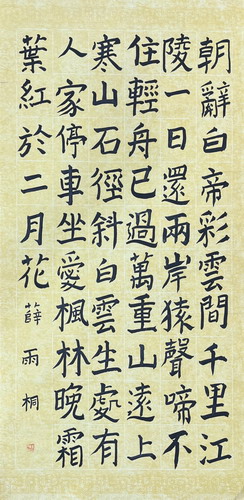 朝辭白帝彩雲間千里江
陵一日還兩岸猿聲啼不
住輕舟已過萬重山遠上
寒山石徑斜白雲生處有
人家停車坐愛楓林晚霜
葉紅於二月花
薛雨桐